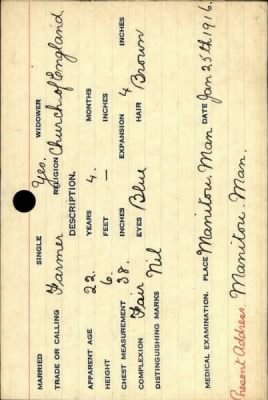 MARRIED SINGLE Yes. WIDOWER
TRADE OR CALLING Farmer RELIGION Church of England
DESCRIPTION.
APPARENT AGE 22 YEARS 4. MONTHS
HEIGHT 6. FEET — INCHES
CHEST MEASUREMENT 38. INCHES EXPANSION 4 INCHES
COMPLEXION Fair EYES Blue HAIR Brown
DISTINGUISHING MARKS Nil
MEDICAL EXAMINATION. PLACE Manitou. Man DATE Jan 25th 1916.
Present Address Manitou. Man.